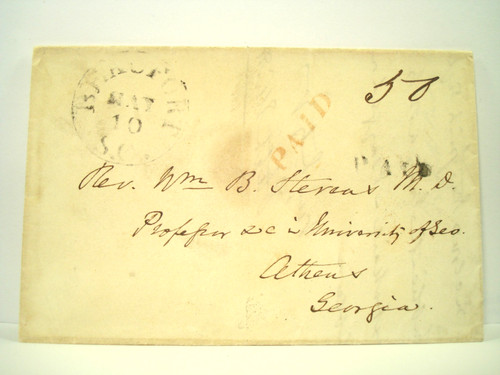 BEAUFORT
MAY
10
S.C.
50
PAID
PAID
Rev. Wm B. Stevens M. D.
Professor &c in University of Geo.
Athens
Georgia.